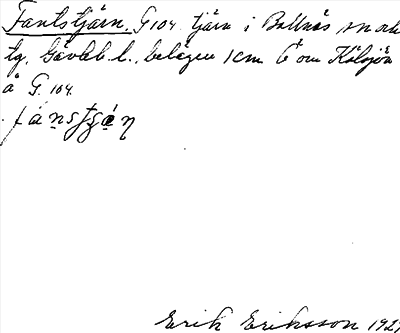 Fantstjärn. G 104. tjärn i Bollnäs sn och
tg, Gävleb. l., belägen 1 cm. O om Kölsjön
å G. 104.
Erik Eriksson 192